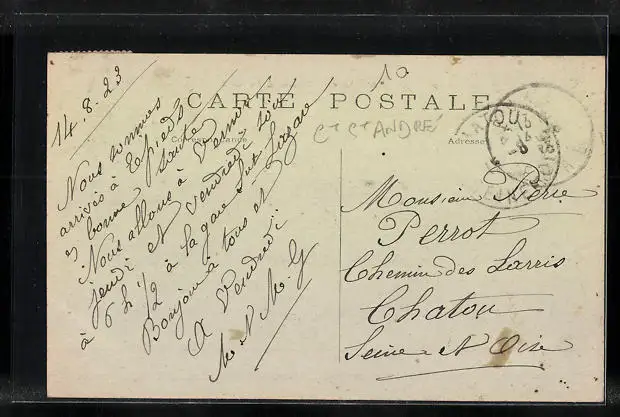 10
CARTE POSTALE
Correspondance
Adresse
Cte St ANDRÉ
14.8.23
Nous sommes
arrivés à Epieds
en bonne santé
Nous allons à Vernon
jeudi et vendredi soir
à 6 h 1/2 à la gare St Lazare
Bonjour à tous et
A Vendredi
M N M. G
Monsieur Pierre
Perrot
Chemin des Larris
Chatou
Seine et Oise